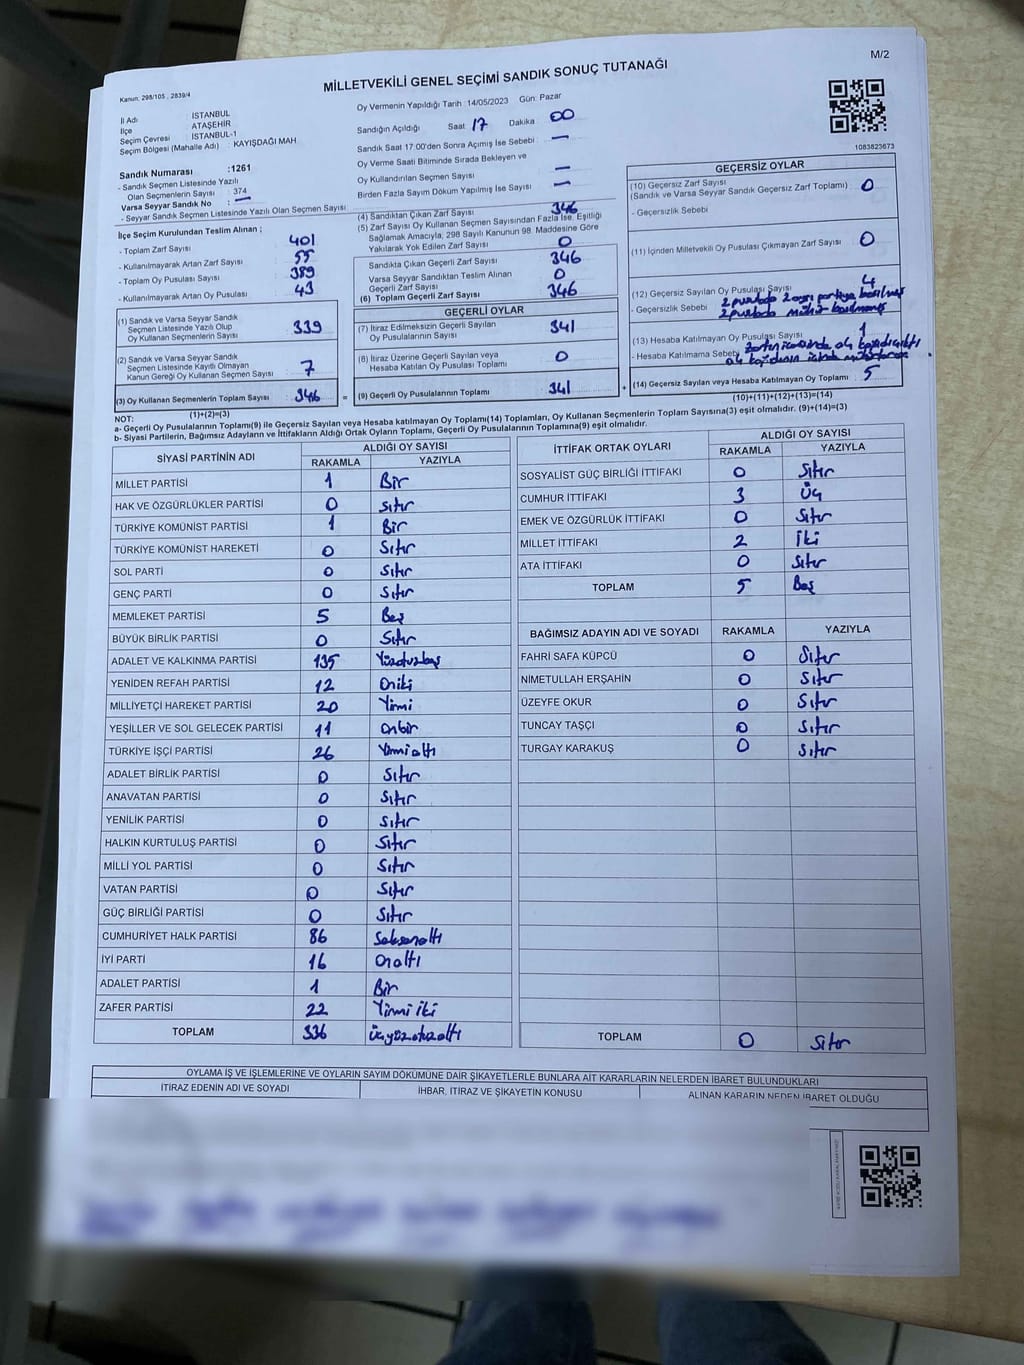 M/2
MİLLETVEKİLİ GENEL SEÇİMİ SANDIK SONUÇ TUTANAĞI
Kanun. 298/105 , 2839/4
İl Adı : İSTANBUL
İlçe : ATAŞEHİR
Seçim Çevresi : İSTANBUL-1
Seçim Bölgesi (Mahalle Adı) : KAYIŞDAĞI MAH
Oy Vermenin Yapıldığı Tarih :14/05/2023 Gün: Pazar
Sandığın Açıldığı Saat 17 Dakika 00
Sandık Saat 17:00'den Sonra Açımış İse Sebebi : —
Oy Verme Saati Bitiminde Sırada Bekleyen ve
Oy Kullandırılan Seçmen Sayısı —
Birden Fazla Sayım Döküm Yapılmış İse Sayısı —
1083823673
Sandık Numarası :1261
- Sandık Seçmen Listesinde Yazılı
Olan Seçmenlerin Sayısı : 374
Varsa Seyyar Sandık No : —
- Seyyar Sandık Seçmen Listesinde Yazılı Olan Seçmen Sayısı
İlçe Seçim Kurulundan Teslim Alınan ;
- Toplam Zarf Sayısı : 401
- Kullanılmayarak Artan Zarf Sayısı : 55
- Toplam Oy Pusulası Sayısı : 389
- Kullanılmayarak Artan Oy Pusulası : 43
(1) Sandık ve Varsa Seyyar Sandık
Seçmen Listesinde Yazılı Olup
Oy Kullanan Seçmenlerin Sayısı : 339
(2) Sandık ve Varsa Seyyar Sandık
Seçmen Listesinde Kayıtlı Olmayan
Kanun Gereği Oy Kullanan Seçmen Sayısı : 7
(3) Oy Kullanan Seçmenlerin Toplam Sayısı : 346
(1)+(2)=(3)
(4) Sandıktan Çıkan Zarf Sayısı 346
(5) Zarf Sayısı Oy Kullanan Seçmen Sayısından Fazla İse, Eşitliği
Sağlamak Amacıyla, 298 Sayılı Kanunun 98. Maddesine Göre
Yakılarak Yok Edilen Zarf Sayısı 0
Sandıkta Çıkan Geçerli Zarf Sayısı 346
Varsa Seyyar Sandıktan Teslim Alınan
Geçerli Zarf Sayısı 0
(6) Toplam Geçerli Zarf Sayısı 346
GEÇERLİ OYLAR
(7) İtiraz Edilmeksizin Geçerli Sayılan
Oy Pusulalarının Sayısı 341
(8) İtiraz Üzerine Geçerli Sayılan veya
Hesaba Katılan Oy Pusulası Toplamı 0
= (9) Geçerli Oy Pusulalarının Toplamı 341 +
GEÇERSİZ OYLAR
(10) Geçersiz Zarf Sayısı
(Sandık ve Varsa Seyyar Sandık Geçersiz Zarf Toplamı) : 0
- Geçersizlik Sebebi
(11) İçinden Milletvekili Oy Pusulası Çıkmayan Zarf Sayısı 0
(12) Geçersiz Sayılan Oy Pusulası Sayısı 4
- Geçersizlik Sebebi 2 pusulada 2 ayrı partiye basılmış
2 pusulada mühür basılmamış
(13) Hesaba Katılmayan Oy Pusulası Sayısı 1
- Hesaba Katılmama Sebebi
(14) Geçersiz Sayılan veya Hesaba Katılmayan Oy Toplamı : 5
(10)+(11)+(12)+(13)=(14)
NOT:
a- Geçerli Oy Pusulalarının Toplamı(9) ile Geçersiz Sayılan veya Hesaba Katılmayan Oy Toplamı(14) Toplamları, Oy Kullanan Seçmenlerin Toplam Sayısına(3) eşit olmalıdır. (9)+(14)=(3)
b- Siyasi Partilerin, Bağımsız Adayların ve İttifakların Aldığı Ortak Oyların Toplamı, Geçerli Oy Pusulalarının Toplamına(9) eşit olmalıdır.
SİYASİ PARTİNİN ADI ALDIĞI OY SAYISI
RAKAMLA YAZIYLA
MİLLET PARTİSİ 1 Bir
HAK VE ÖZGÜRLÜKLER PARTİSİ 0 Sıfır
TÜRKİYE KOMÜNİST PARTİSİ 1 Bir
TÜRKİYE KOMÜNİST HAREKETİ 0 Sıfır
SOL PARTİ 0 Sıfır
GENÇ PARTİ 0 Sıfır
MEMLEKET PARTİSİ 5 Beş
BÜYÜK BİRLİK PARTİSİ 0 Sıfır
ADALET VE KALKINMA PARTİSİ 135 Yüzotuzbeş
YENİDEN REFAH PARTİSİ 12 Oniki
MİLLİYETÇİ HAREKET PARTİSİ 20 Yirmi
YEŞİLLER VE SOL GELECEK PARTİSİ 11 Onbir
TÜRKİYE İŞÇİ PARTİSİ 26 Yirmi altı
ADALET BİRLİK PARTİSİ 0 Sıfır
ANAVATAN PARTİSİ 0 Sıfır
YENİLİK PARTİSİ 0 Sıfır
HALKIN KURTULUŞ PARTİSİ 0 Sıfır
MİLLİ YOL PARTİSİ 0 Sıfır
VATAN PARTİSİ 0 Sıfır
GÜÇ BİRLİĞİ PARTİSİ 0 Sıfır
CUMHURİYET HALK PARTİSİ 86 Seksenaltı
İYİ PARTİ 16 Onaltı
ADALET PARTİSİ 1 Bir
ZAFER PARTİSİ 22 Yirmi iki
TOPLAM 336 Üçyüzotuzaltı
İTTİFAK ORTAK OYLARI ALDIĞI OY SAYISI
RAKAMLA YAZIYLA
SOSYALİST GÜÇ BİRLİĞİ İTTİFAKI 0 Sıfır
CUMHUR İTTİFAKI 3 Üç
EMEK VE ÖZGÜRLÜK İTTİFAKI 0 Sıfır
MİLLET İTTİFAKI 2 İki
ATA İTTİFAKI 0 Sıfır
TOPLAM 5 Beş
BAĞIMSIZ ADAYIN ADI VE SOYADI RAKAMLA YAZIYLA
FAHRİ SAFA KÜPCÜ 0 Sıfır
NİMETULLAH ERŞAHİN 0 Sıfır
ÜZEYFE OKUR 0 Sıfır
TUNCAY TAŞÇI 0 Sıfır
TURGAY KARAKUŞ 0 Sıfır
TOPLAM 0 Sıfır
OYLAMA İŞ VE İŞLEMLERİNE VE OYLARIN SAYIM DÖKÜMÜNE DAİR ŞİKAYETLERLE BUNLARA AİT KARARLARIN NELERDEN İBARET BULUNDUKLARI
İTİRAZ EDENİN ADI VE SOYADI İHBAR, İTİRAZ VE ŞİKAYETİN KONUSU ALINAN KARARIN NEDEN İBARET OLDUĞU